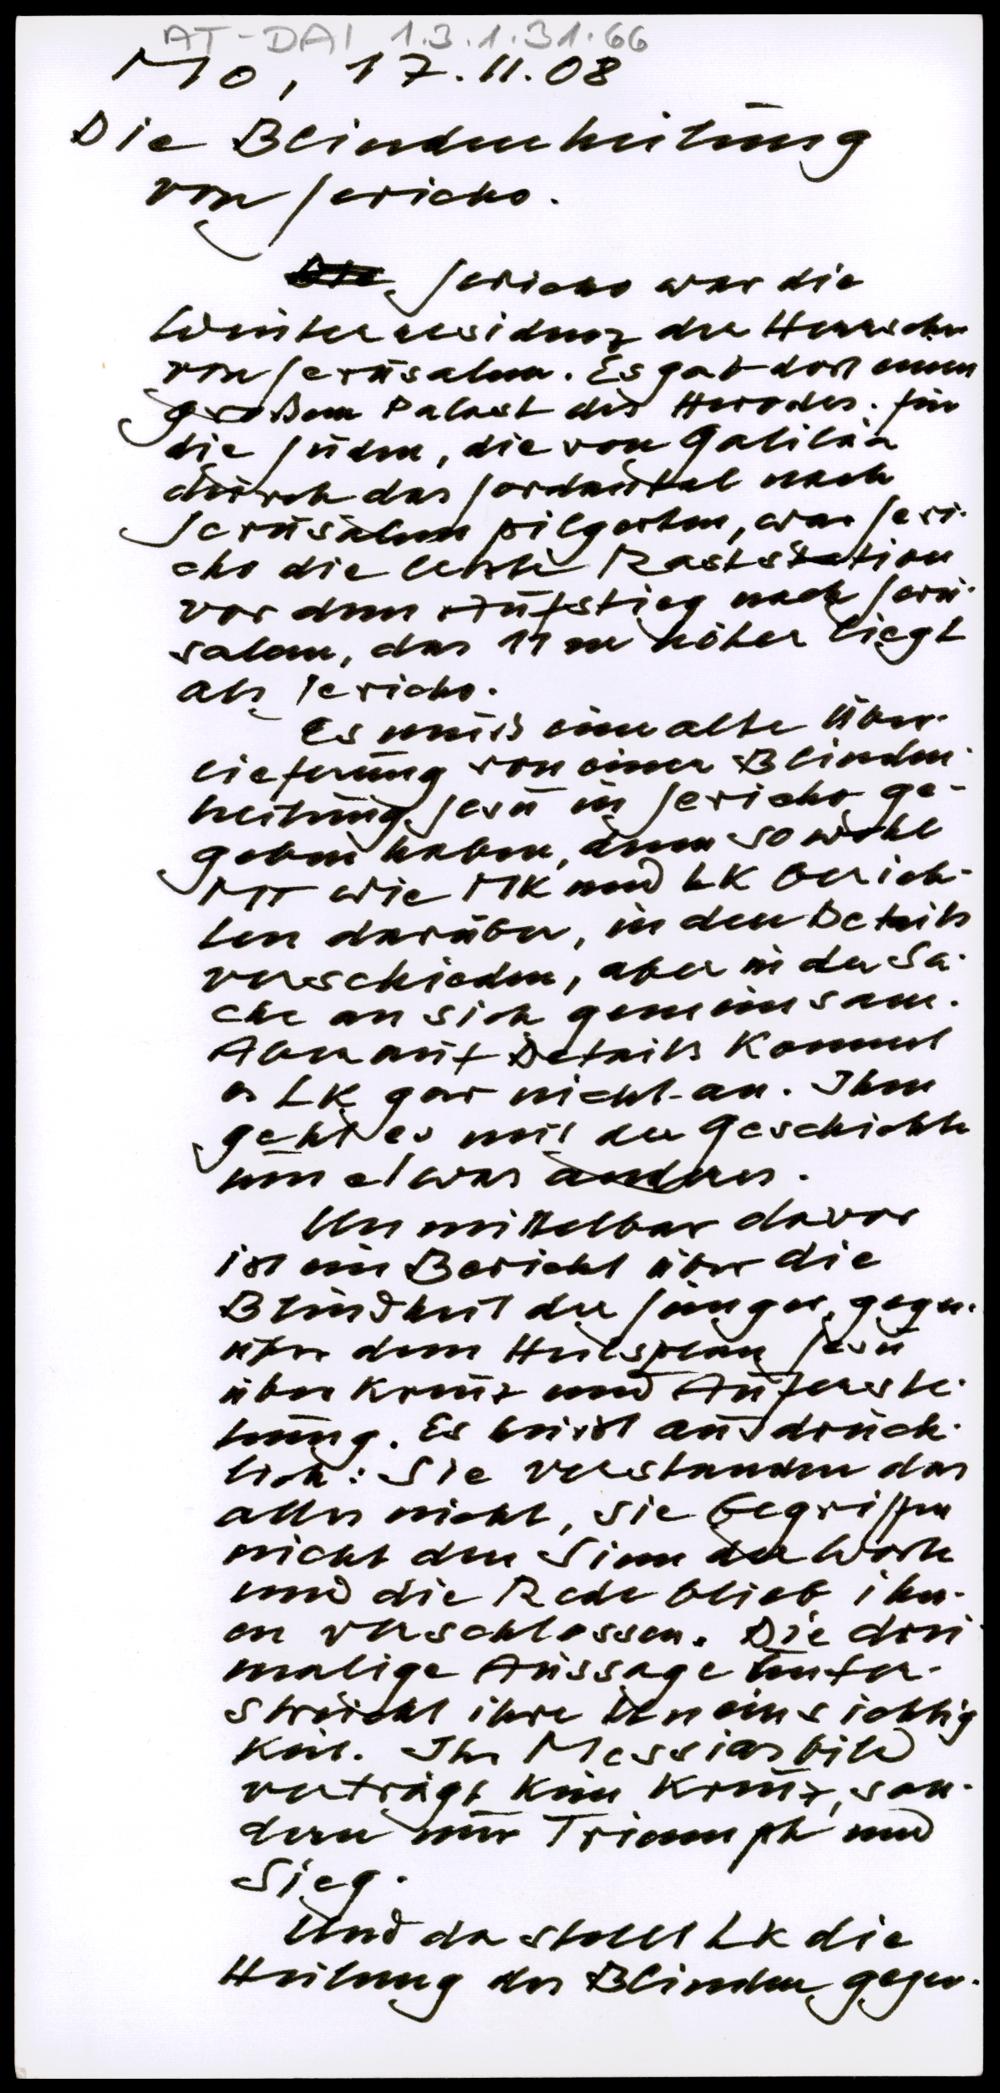 AT-DAI 1.3.1.31.66
Mo, 17.11.08
Die Blindenheilung
von Jericho.
Die Jericho war die
Winterresidenz der Herrscher
von Jerusalem. Es gab dort einen
großen Palast des Herodes. Für
die Juden, die von Galiläa
durch das Jordantal nach
Jerusalem pilgerten, war Jeri-
cho die letzte Raststation
vor dem Aufstieg nach Jeru-
salem, das 11 m höher liegt
als Jericho.
Es muß eine alte Über-
lieferung von einer Blinden-
heilung Jesu in Jericho ge-
geben haben, denn sowohl
MT wie MK und LK berich-
ten darüber, in den Details
verschieden, aber in der Sa-
che an sich gemeinsam.
Aber auf Details kommt
es LK gar nicht an. Ihm
geht es mit der Geschichte
um etwas anderes.
Unmittelbar davor
ist ein Bericht über die
Blindheit der Jünger, gegen-
über dem Heilsplan Jesu
über Kreuz und Auferste-
hung. Es heißt ausdrück-
lich: Sie verstanden das
alles nicht, sie begriffen
nicht den Sinn der Worte
und die Rede blieb ihn-
en verschlossen. Die drei
malige Aussage unter-
streicht ihre Uneinsichtig
keit. Ihr Messiasbild
verträgt kein Kreuz, son-
dern nur Triumph und
Sieg.
Und da stellt LK die
Heilung des Blinden gegen-